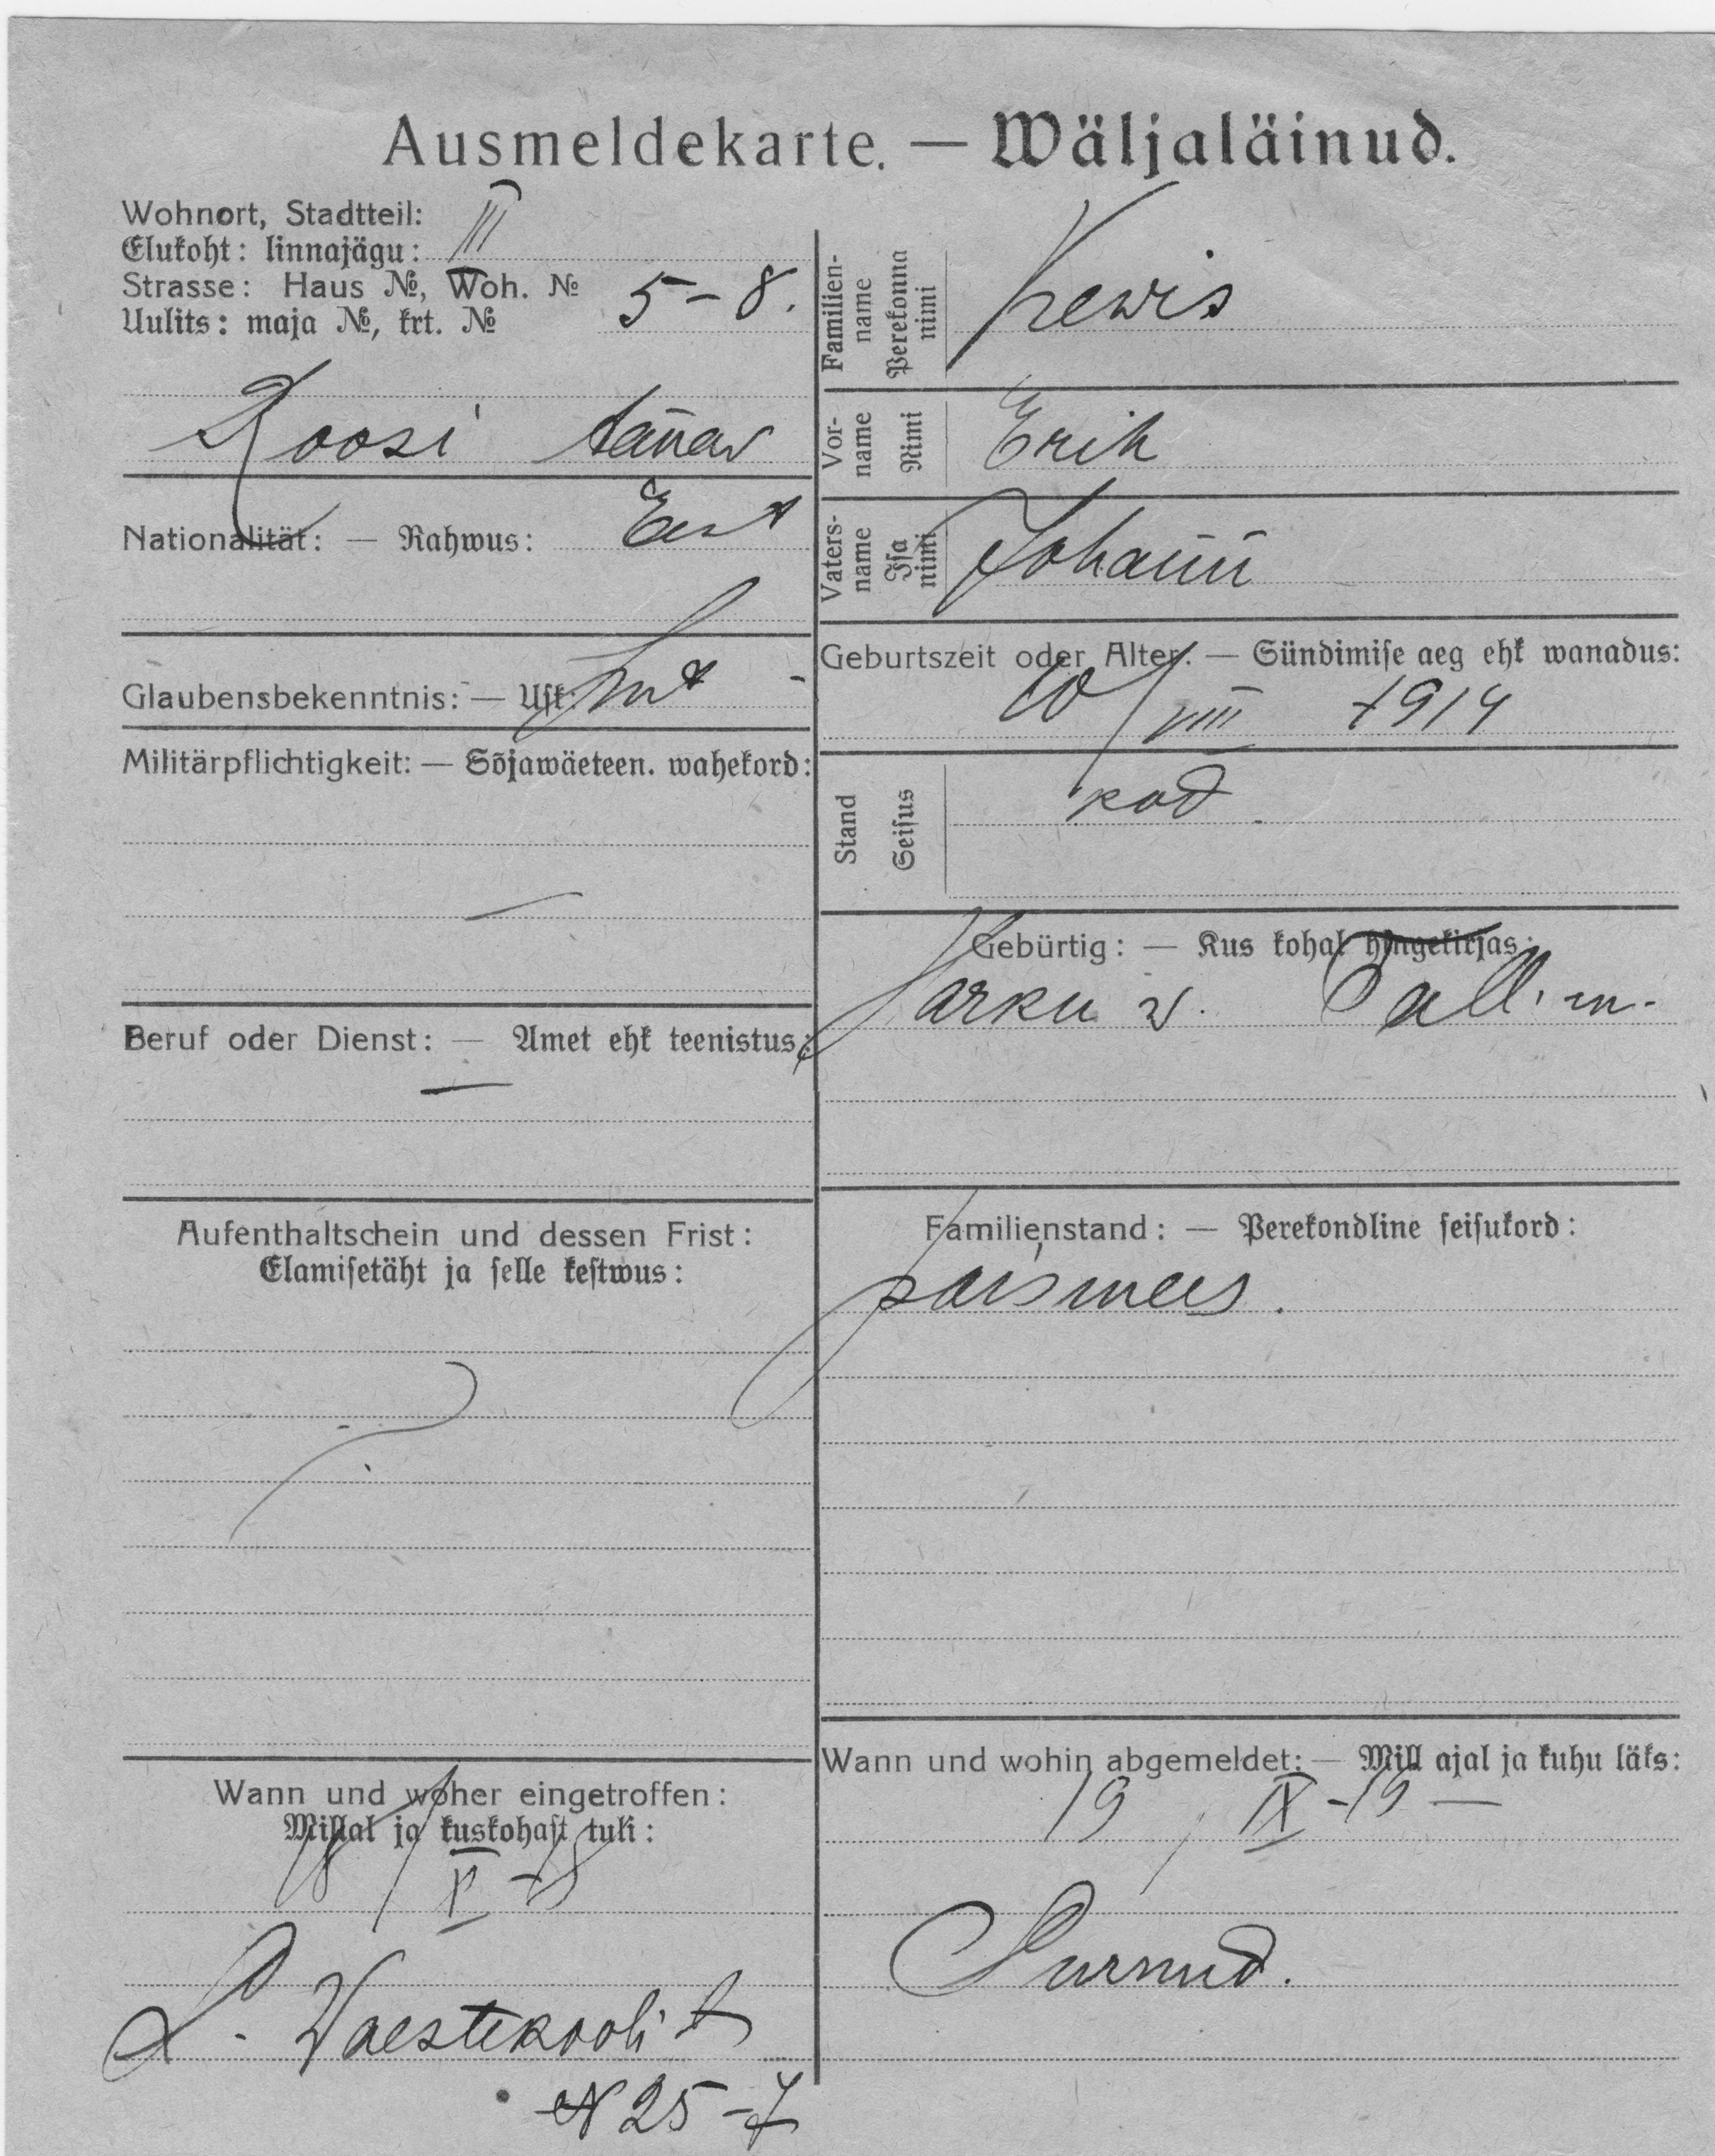 Ausmeldekarte. — Wäljaläinud.
Wohnort, Stadtteil:
Elukoht: linnajägu: III
Strasse: Haus №, Woh. №
Uulits: maja №, krt. № 5–8.
Roosi tänaw
Nationalität: — Rahwus: Eest
Glaubensbekenntnis: — Usk: Lut
Militärpflichtigkeit: — Sõjawäeteen. wahekord:
—
Beruf oder Dienst: — Amet ehk teenistus:
—
Aufenthaltschein und dessen Frist:
Elamisetäht ja selle kestwus:
Wann und woher eingetroffen:
Millal ja kuskohast tuli:
18/X –18
L. Waestekooli t
N 25–7
Familien-name Perekonna nimi Kewis
Vor-name Nimi Erih
Vaters-name Isa nimi Johann
Geburtszeit oder Alter. — Sündimise aeg ehk wanadus:
10/VIII 1914
Stand Seisus kod.
Gebürtig: — Kus kohal hingekirjas:
Harku w. Tall. m.
Familienstand: — Perekondline seisukord:
poismees.
Wann und wohin abgemeldet: — Mill ajal ja kuhu läks:
19/IX –19 —
Surnud.